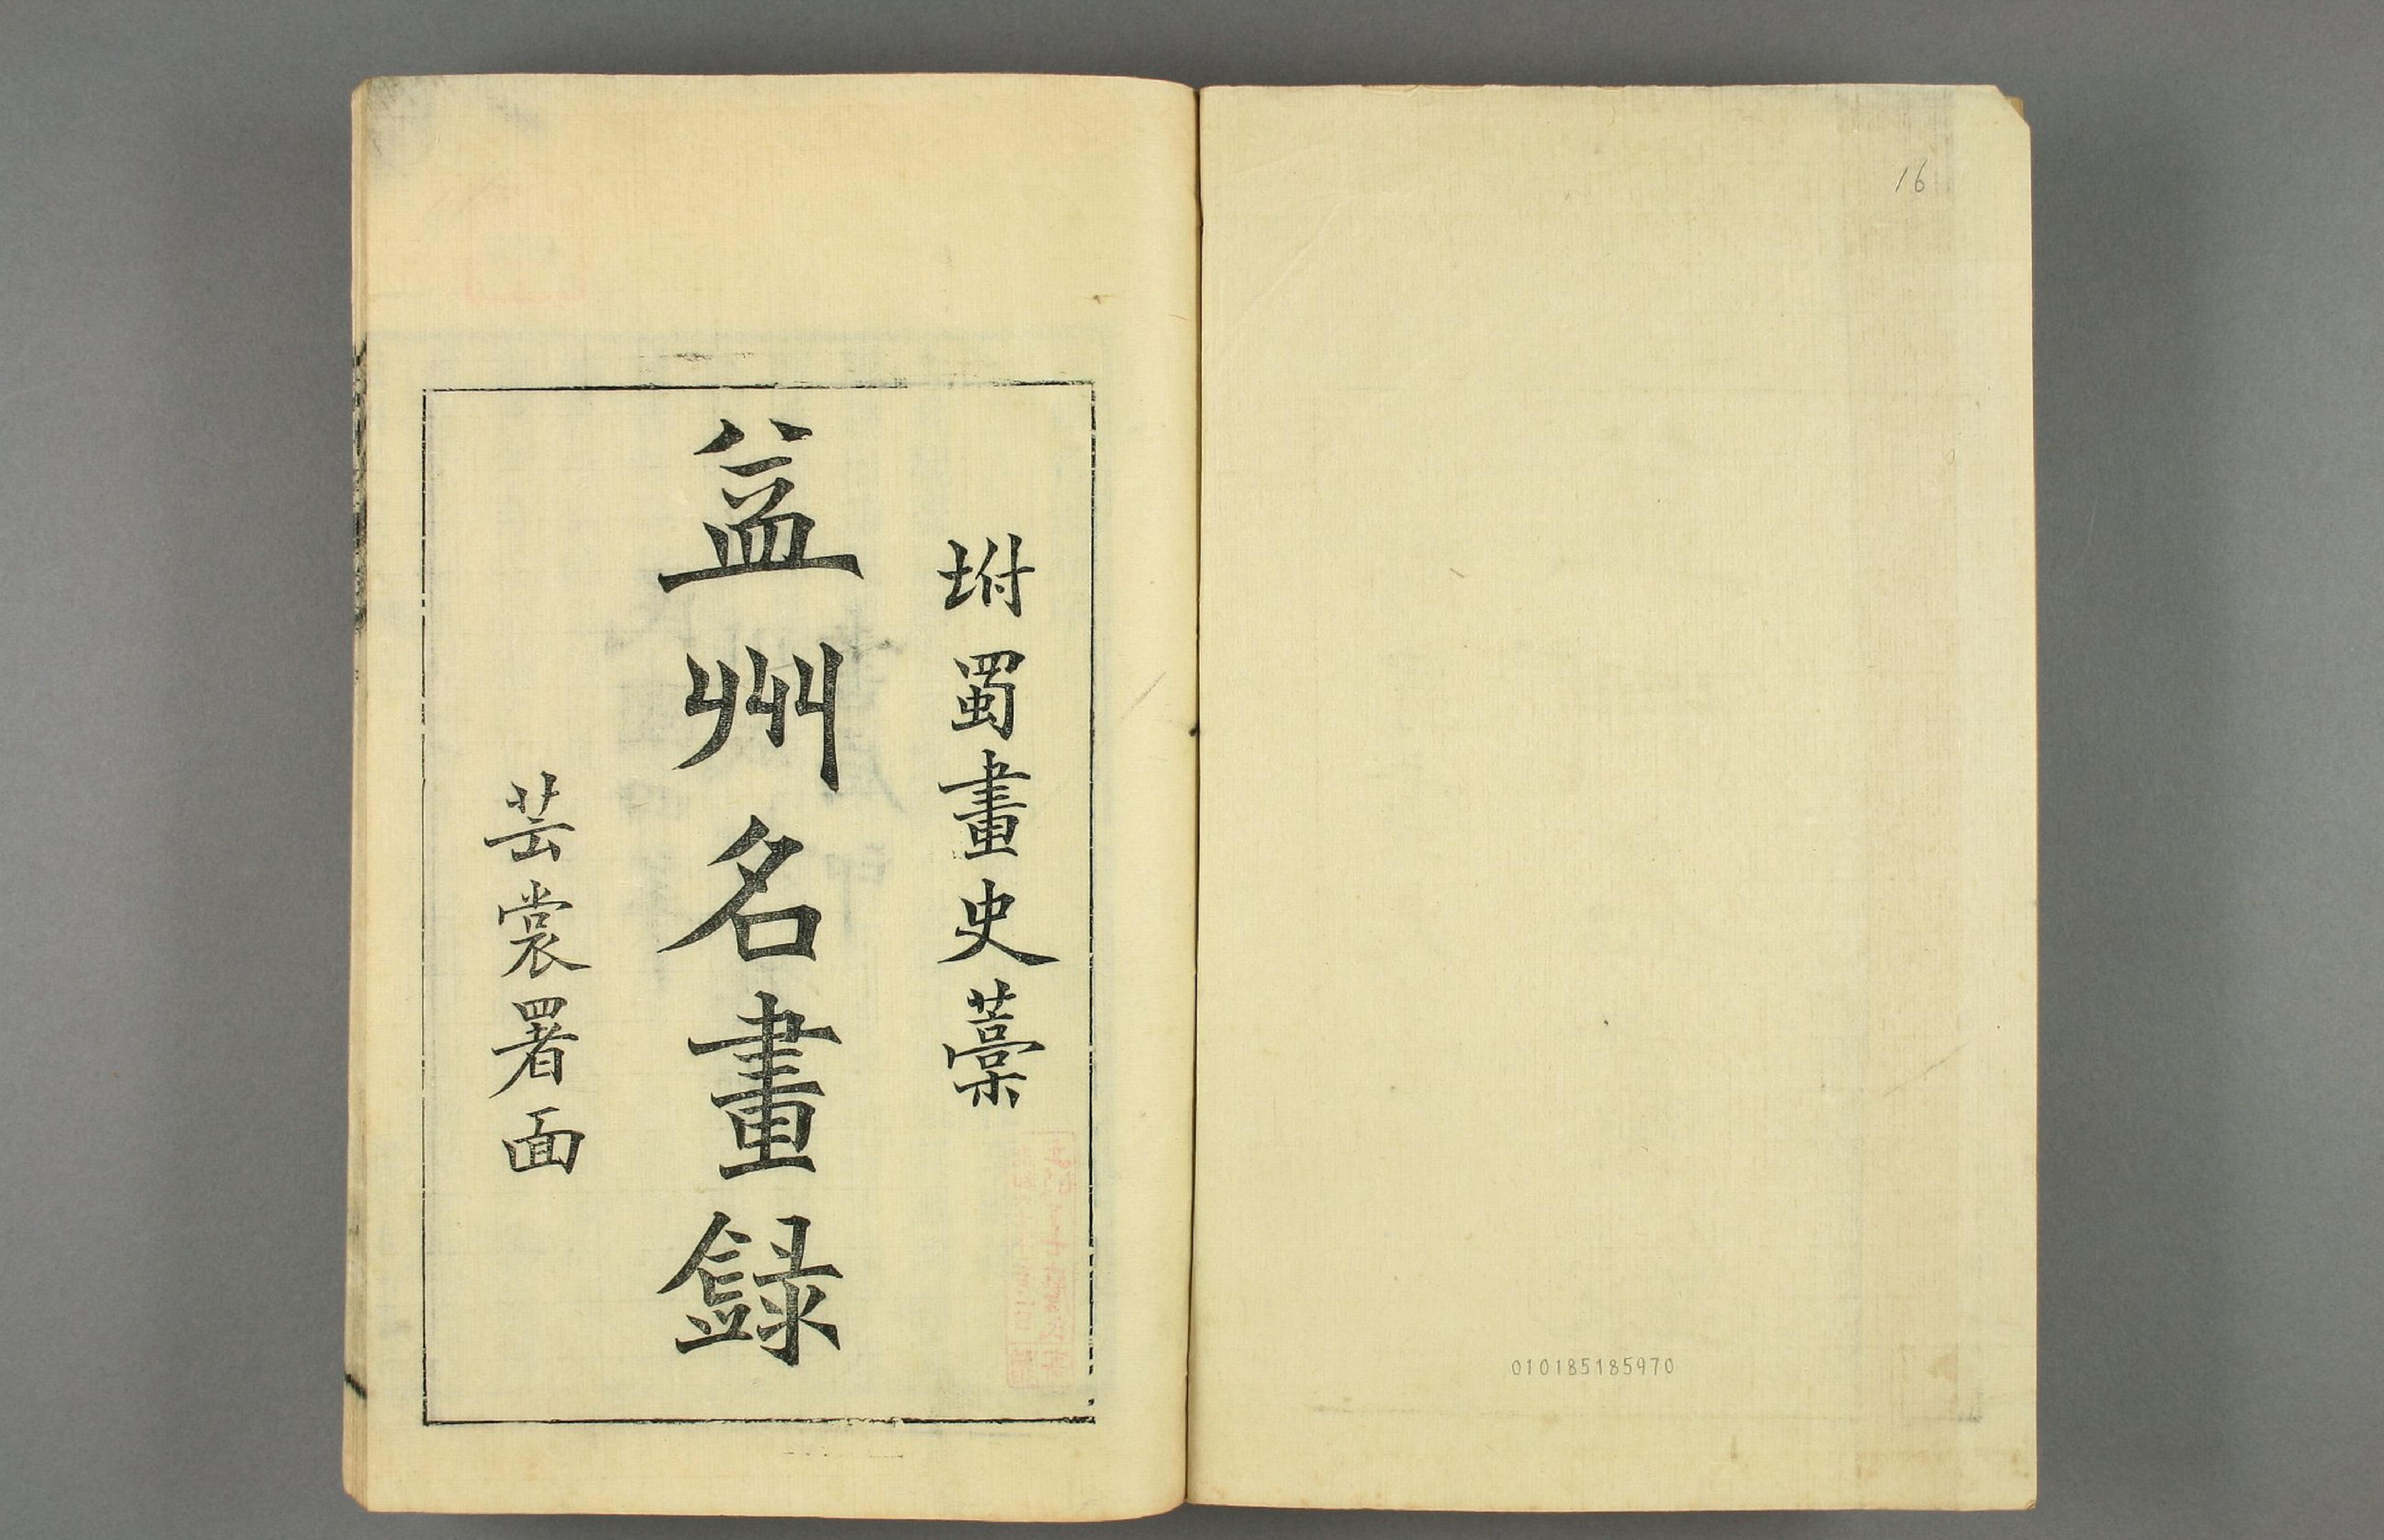 16
010185185970
坿蜀畫史藳
益州名畫録
芸裳署面